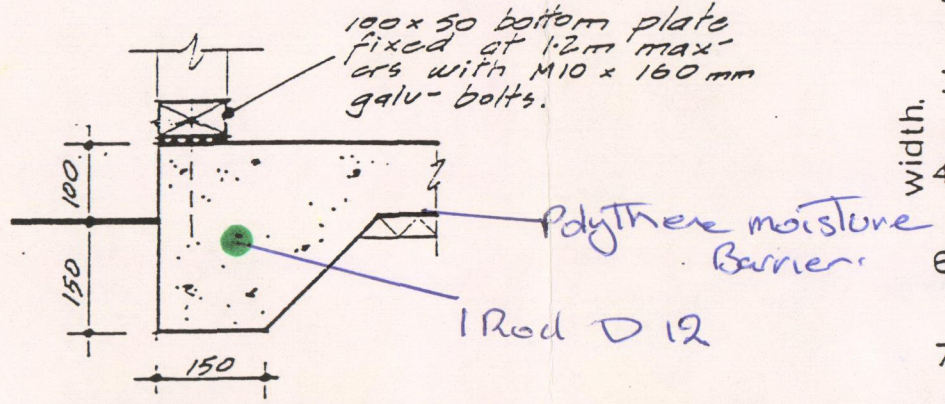 100 x 50 bottom plate
fixed at 1.2m max-
crs with M10 x 160 mm
galv- bolts.
100
150
150
Polythene moisture
Barrier.
1 Rod D 12
width.